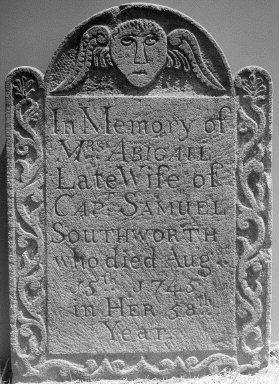 In Memory of
Mrs. ABIGAIL
Late Wife of
CAP: SAMUEL
SOUTHWORTH
who died Aug:
15th 1745
in HER 58th
Year.